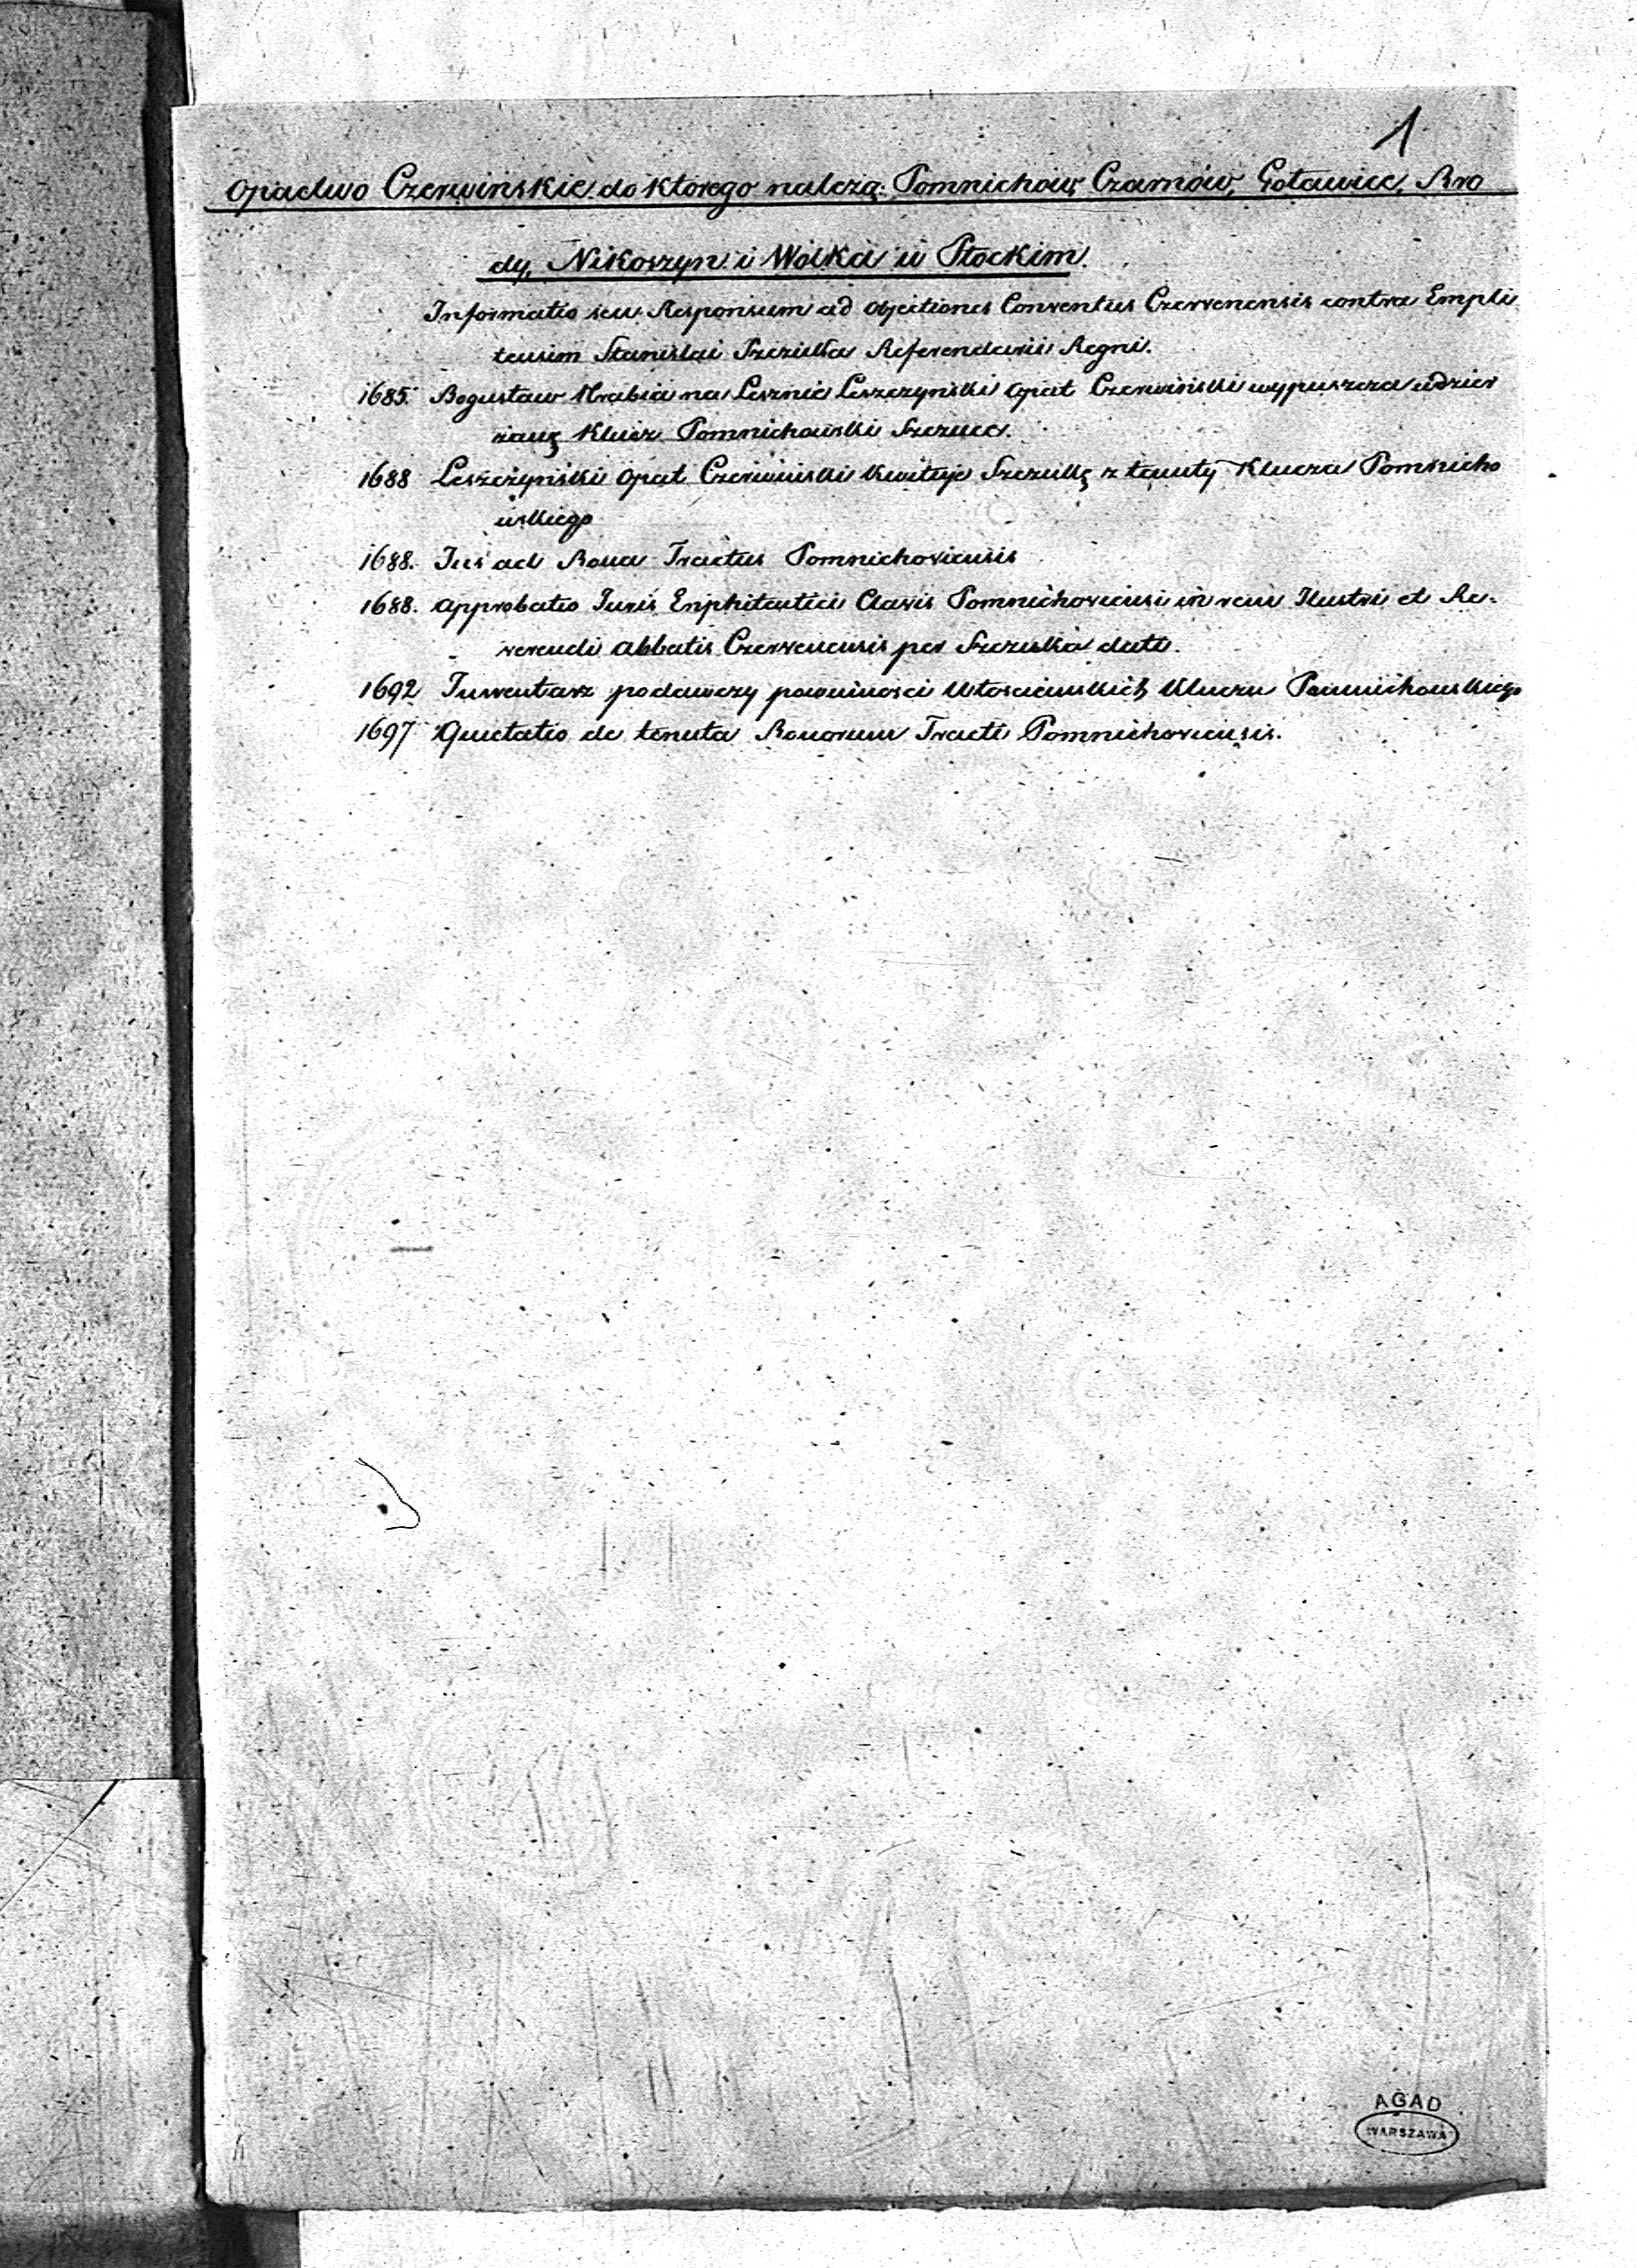 1
Opactwo Czerwińskie do Którego należą: Pomnichów, Czarnów, Goławice, Bro
dy, Nikoszyn i Wólka w Płockim.
Informatio seu Responsum ad objectiones Conventus Czervenensis contra Emphi
teusim Stanislai Szczuka Referendarii Regni.
1685. Bogusław Hrabia na Lesznie Leszczyński Opat Czerwiński wypuszcza w dzier
żawę Klucz Pomnichowski Szczuce.
1688 Leszczyński Opat Czerwiński Kwituje Szczukę z tenuty Klucza Pomnicho
wskiego
1688. Jus ad Bona Tractus Pomnichoviensis
1688. Approbatio Juris Enphiteutici Clavis Pomnichoviensi in rem Ilustri et Re-
verendi Abbatis Czervenensis per Szczuka dati.
1692 Inwentarz podawczy powinności Włościańskich Klucza Pomnichowskiego
1697 Quietatio de tenuta Bonorum Tracti Pomnichoviensis.
AGAD
WARSZAWA